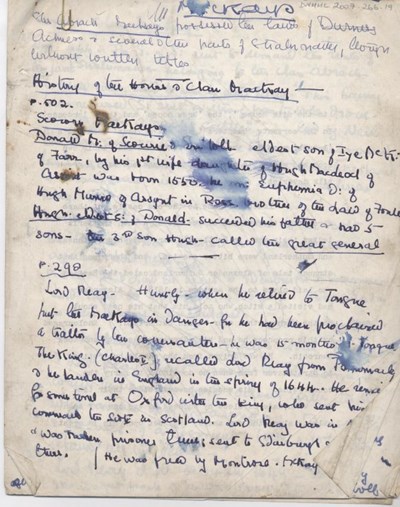 Mackays
DNHHL 2009
The Mackays possessed the lands of Durness
& several other parts of Strathnaver,
without written titles
History of the House & Clan Mackay
P. 502.
Scourie Mackays
Donald Mc. of Scourie eldest son of Iye McK.
of Farr, by his 1st wife daughter of Hugh Macleod of
Assynt was born 1550. he m. Euphemia D: of
Hugh Munro of Assynt in Ross brother of the laird of Foulis
Hugh eldest s: of Donald succeeded his father & had 5
sons - the 3rd son Hugh - called the great general
P. 290
Lord Reay. Huntly - when he retired to Tongue
put the Mackays in Danger - for he had been proclaimed
a traitor by the covenanters - he was 15 months in Tongue
The King. (Charles I) recalled Lord Reay from
& he landed in England in the spring of 1644. He
for some time at Oxford with the King, who sent him
in Scotland. Lord Reay was in
& was taken prisoner & sent to Edinburgh
there. | He was freed by Montrose.